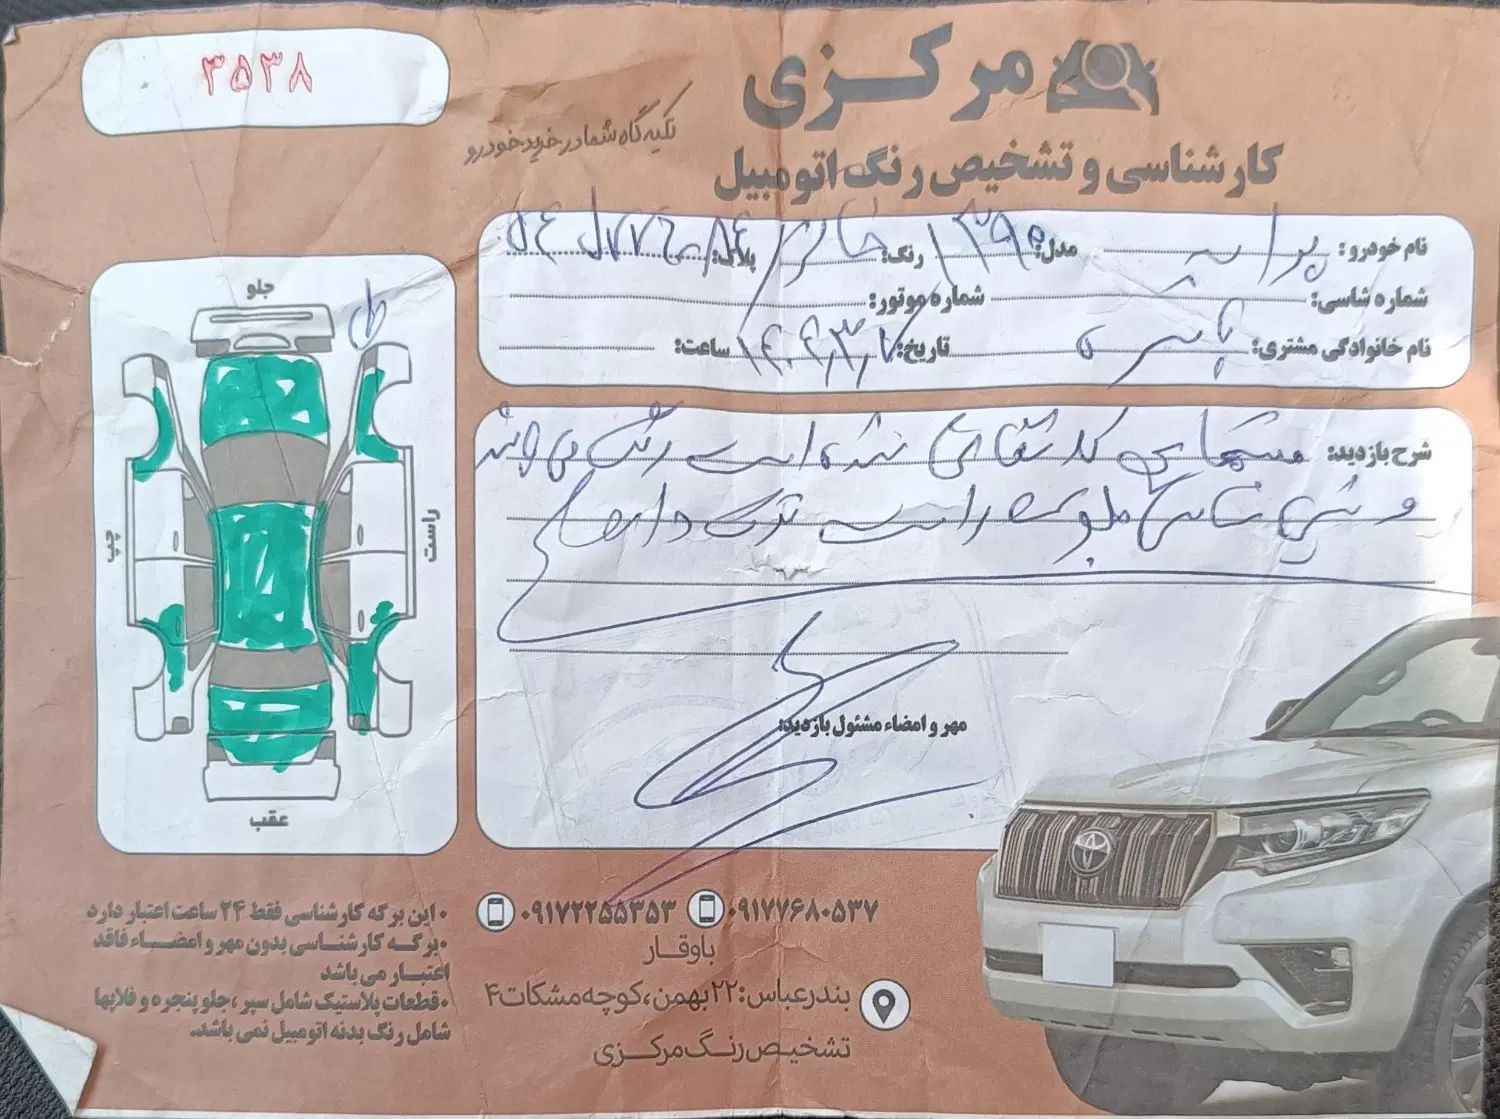 ۳۵۳۸
مرکزی
تکیه گاه شما در خرید خودرو
کارشناسی و تشخیص رنگ اتومبیل
نام خودرو: پراید مدل: ۱۳۹۰ رنگ: پلاک:
شماره شاسی: شماره موتور:
نام خانوادگی مشتری: تاریخ: ساعت:
شرح بازدید: شده است رنگ می باشد
و شاسی جلو سمت راست ترک دارد
مهر و امضاء مسئول بازدید:
جلو
چپ
راست
عقب
• این برگه کارشناسی فقط ۲۴ ساعت اعتبار دارد
• برگه کارشناسی بدون مهر و امضاء فاقد
اعتبار می باشد
• قطعات پلاستیک شامل سپر، جلو پنجره و فلاپها
شامل رنگ بدنه اتومبیل نمی باشد.
۰۹۱۷۲۲۵۵۳۵۳ ۰۹۱۷۷۶۸۰۵۳۷
باوقار
بندرعباس: ۲۲ بهمن، کوچه مشکات ۴
تشخیص رنگ مرکزی